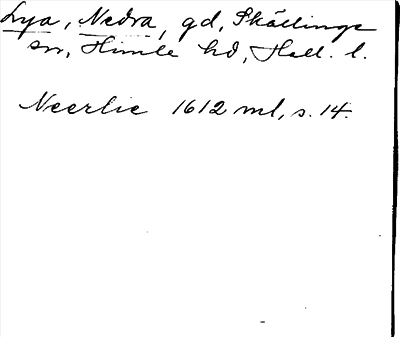 Lya, Nedra, gd, Skällinge
sn, Himle hd, Hall. l.
Neerlie 1612 ml, s. 14.